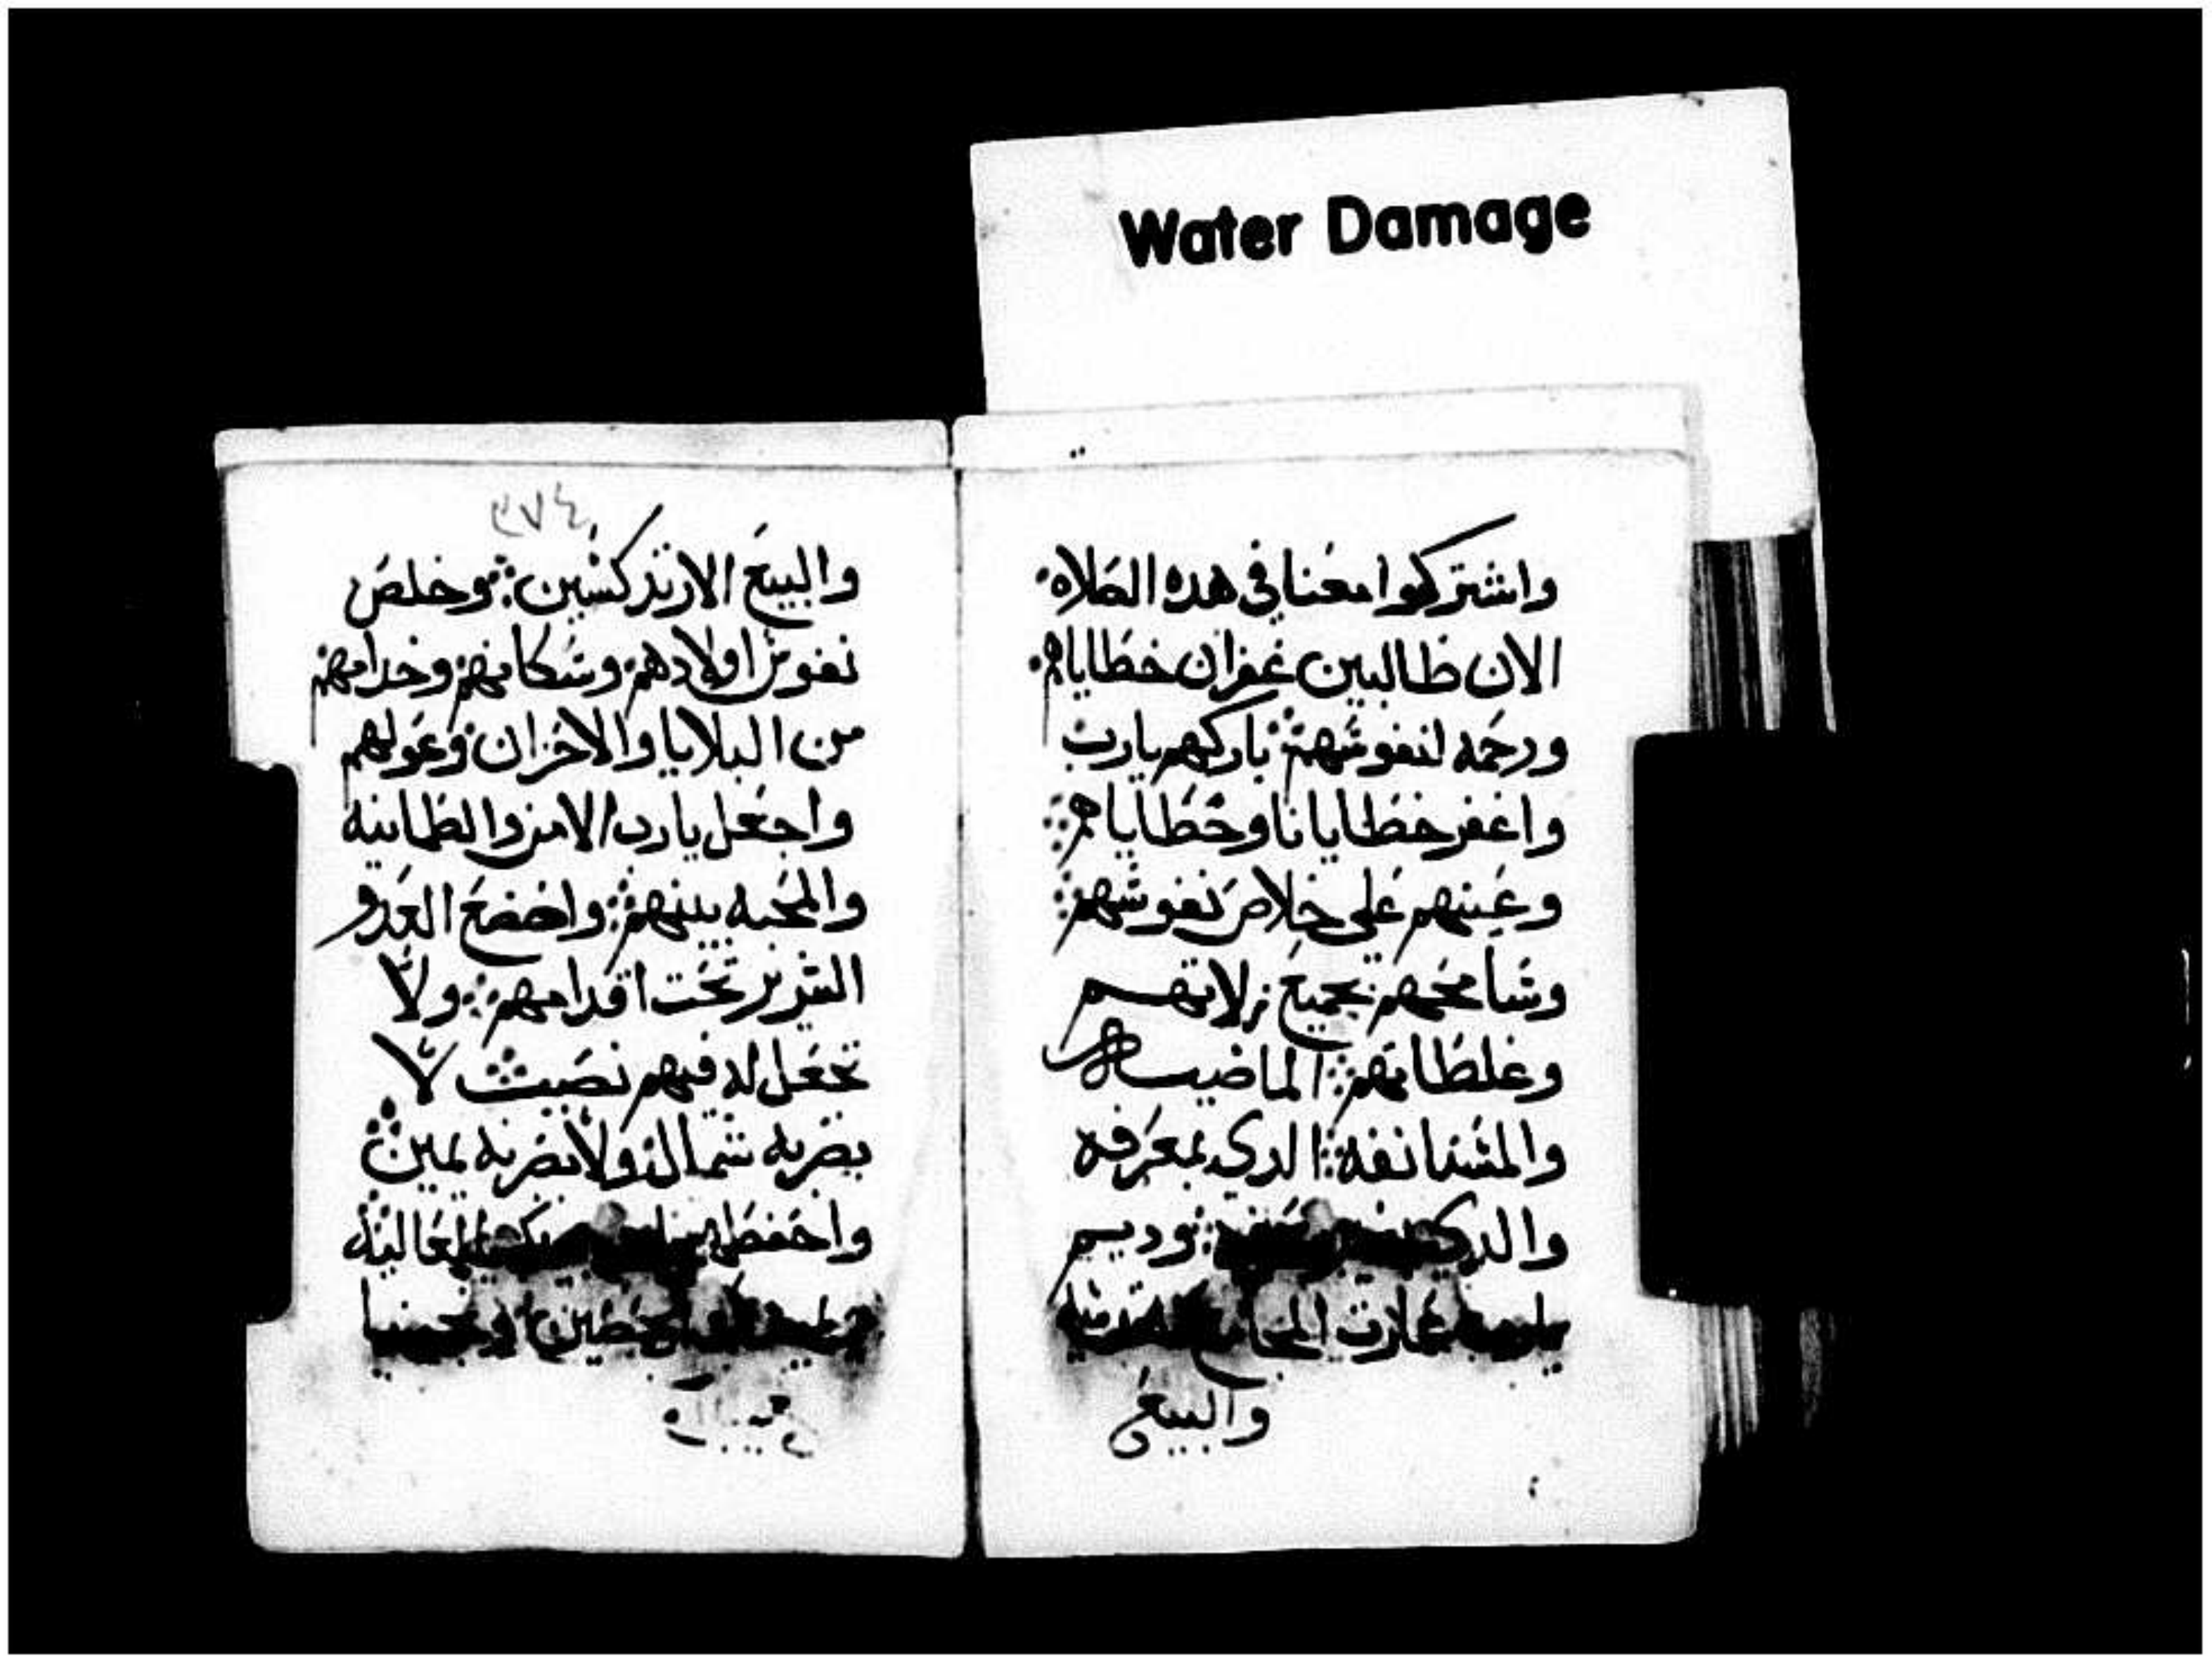 Water Damage
واشتركوا معنا في هده الصلاه
الان طالبين غفران خطاياهم
ورحمه لنفوسهم باركهم يارب
واغفر خطايانا وخطاياهم
وعينهم على خلاص نفوسهم
وسامحهم بجميع زلاتهم
وغلطاتهم الماضيه
والمستانفة الدي بمعرفه
والدي وديم
عمارت
والبيع
٣٧٤
والبيع الارتدكسين وخلص
نفوس اولادهم وسكانهم وخدامهم
من البلايا والاحزان وعولهم
واجعل يارب الامن والطمانينه
والمحبه بينهم واخضع العدو
الشرير تحت اقدامهم ولا
تجعل له فيهم نصيب لا
بضربه شمال ولا بضربه يمين
واحفظهم العاليه